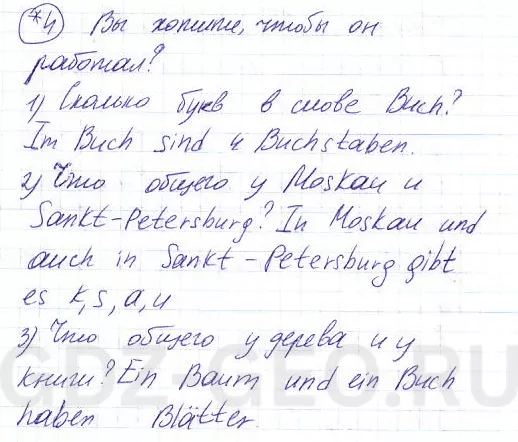 *4 Вы хотите, чтобы он
работал?
1) Сколько букв в слове Buch?
Im Buch sind 4 Buchstaben.
2) Что общего у Moskau и
Sankt-Petersburg? In Moskau und
auch in Sankt-Petersburg gibt
es k, s, a, u
3) Что общего у дерева и у
книги? Ein Baum und ein Buch
haben Blätter.
GDZ-GEO.RU